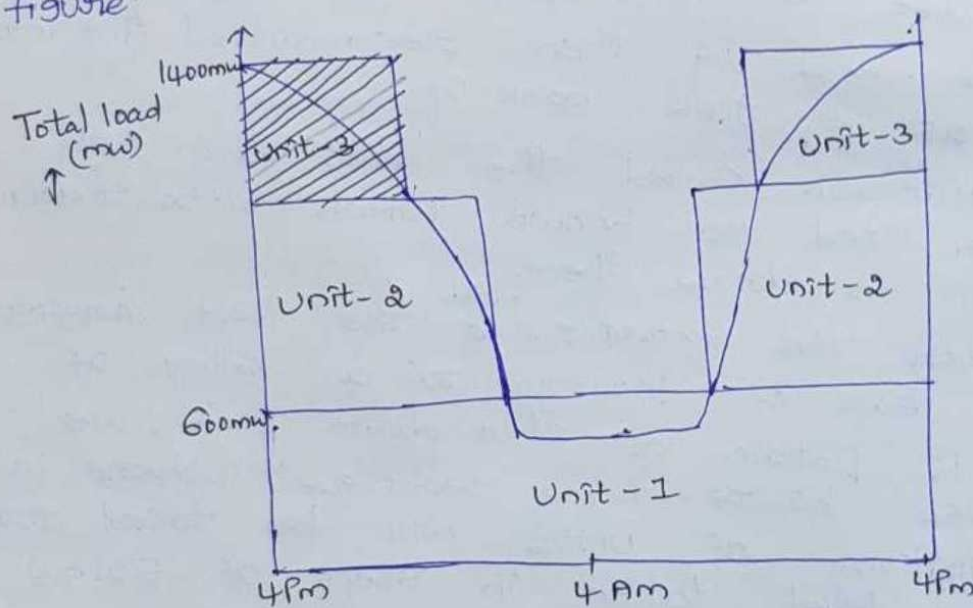 figure
1400mw
Total load
(mw)
unit-3
unit-3
unit-2
unit-2
600mw
unit-1
4Pm
4 Am
4Pm